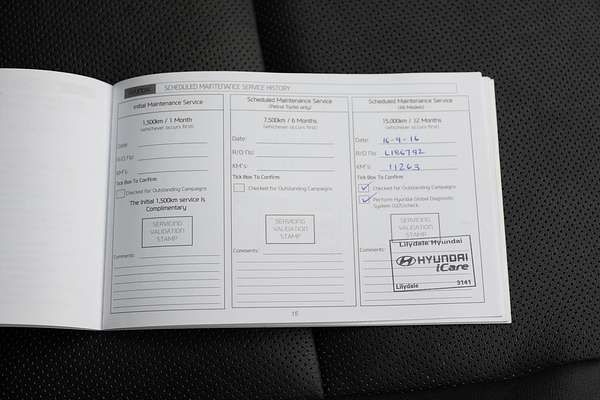 HYUNDAI SCHEDULED MAINTENANCE SERVICE HISTORY
Initial Maintenance Service
1,500km / 1 Month
(whichever occurs first)
Date:
R/O No:
KM's:
Tick Box To Confirm
Checked for Outstanding Campaigns
The initial 1,500km service is
Complimentary
SERVICING
VALIDATION
STAMP
Comments:
Scheduled Maintenance Service
(Petrol Turbo only)
7,500km / 6 Months
(whichever occurs first)
Date:
R/O No:
KM's:
Tick Box To Confirm
Checked for Outstanding Campaigns
SERVICING
VALIDATION
STAMP
Comments:
Scheduled Maintenance Service
(All Models)
15,000km / 12 Months
(whichever occurs first)
Date: 16-4-16
R/O No: L186792
KM's: 11263
Tick Box To Confirm
Checked for Outstanding Campaigns
Perform Hyundai Global Diagnostic
System (GDS)check
SERVICING
VALIDATION
STAMP
Comments:
Lilydale Hyundai
HYUNDAI
iCare
Lilydale 3141
15